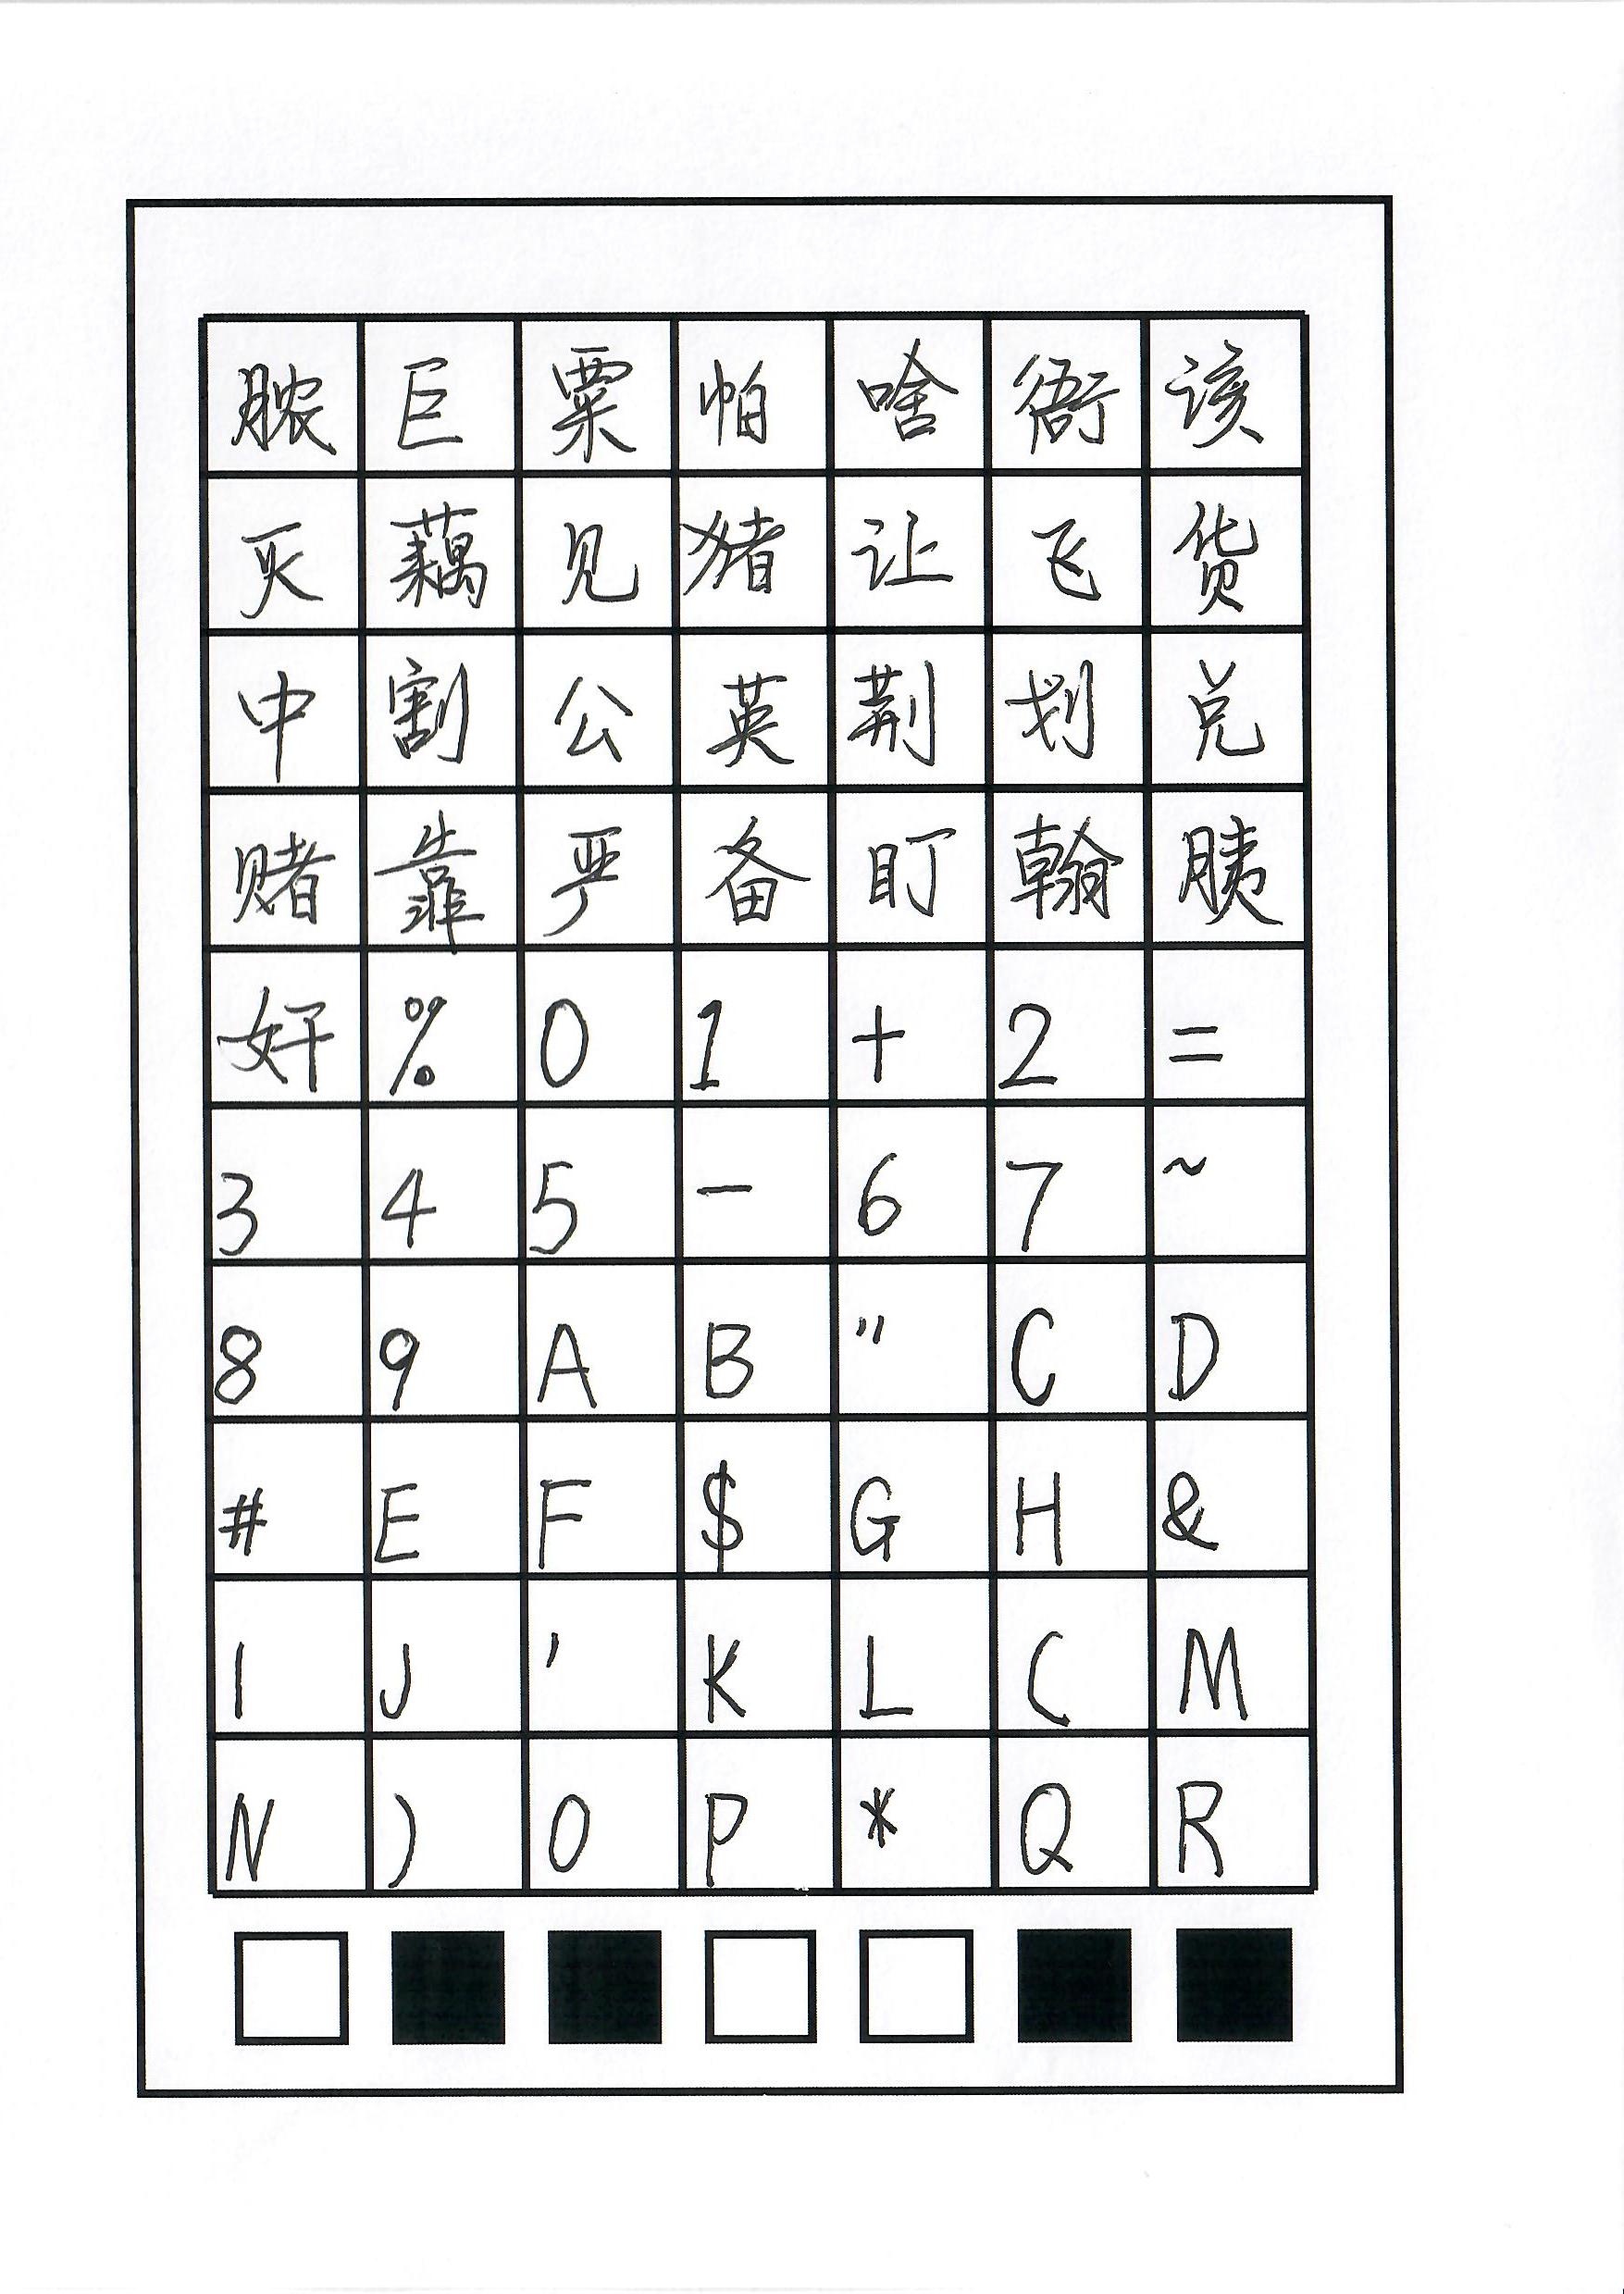 脓 巨 粟 帕 啥 衙 该
灭 藕 见 猪 让 飞 货
中 割 公 英 荆 划 兑
赌 靠 严 备 盯 翰 胰
奸 % 0 1 + 2 =
3 4 5 - 6 7 ~
8 9 A B " C D
# E F $ G H &
I J ' K L ( M
N ) O P * Q R